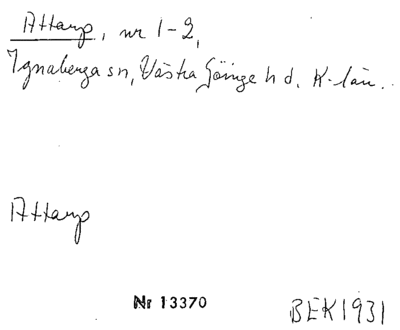 Attarp, nr 1-2,
Ignaberga sn, Västra Göinge hd. K-län.
Attarp
Nr 13370
BEK 1931